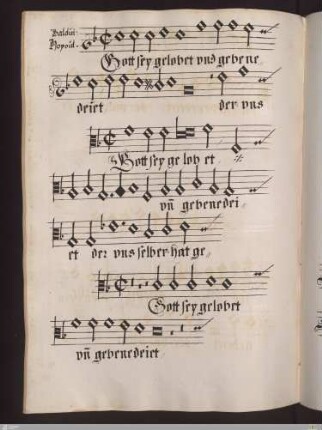 Baldui.
Hoyoul.
Gott sey gelobet vnd gebene
deiet der vns
Gott sey ge lob et
vn̄ gebenedei
et der vns selber hat ge
Gott sey gelobet
vn̄ gebenedeiet